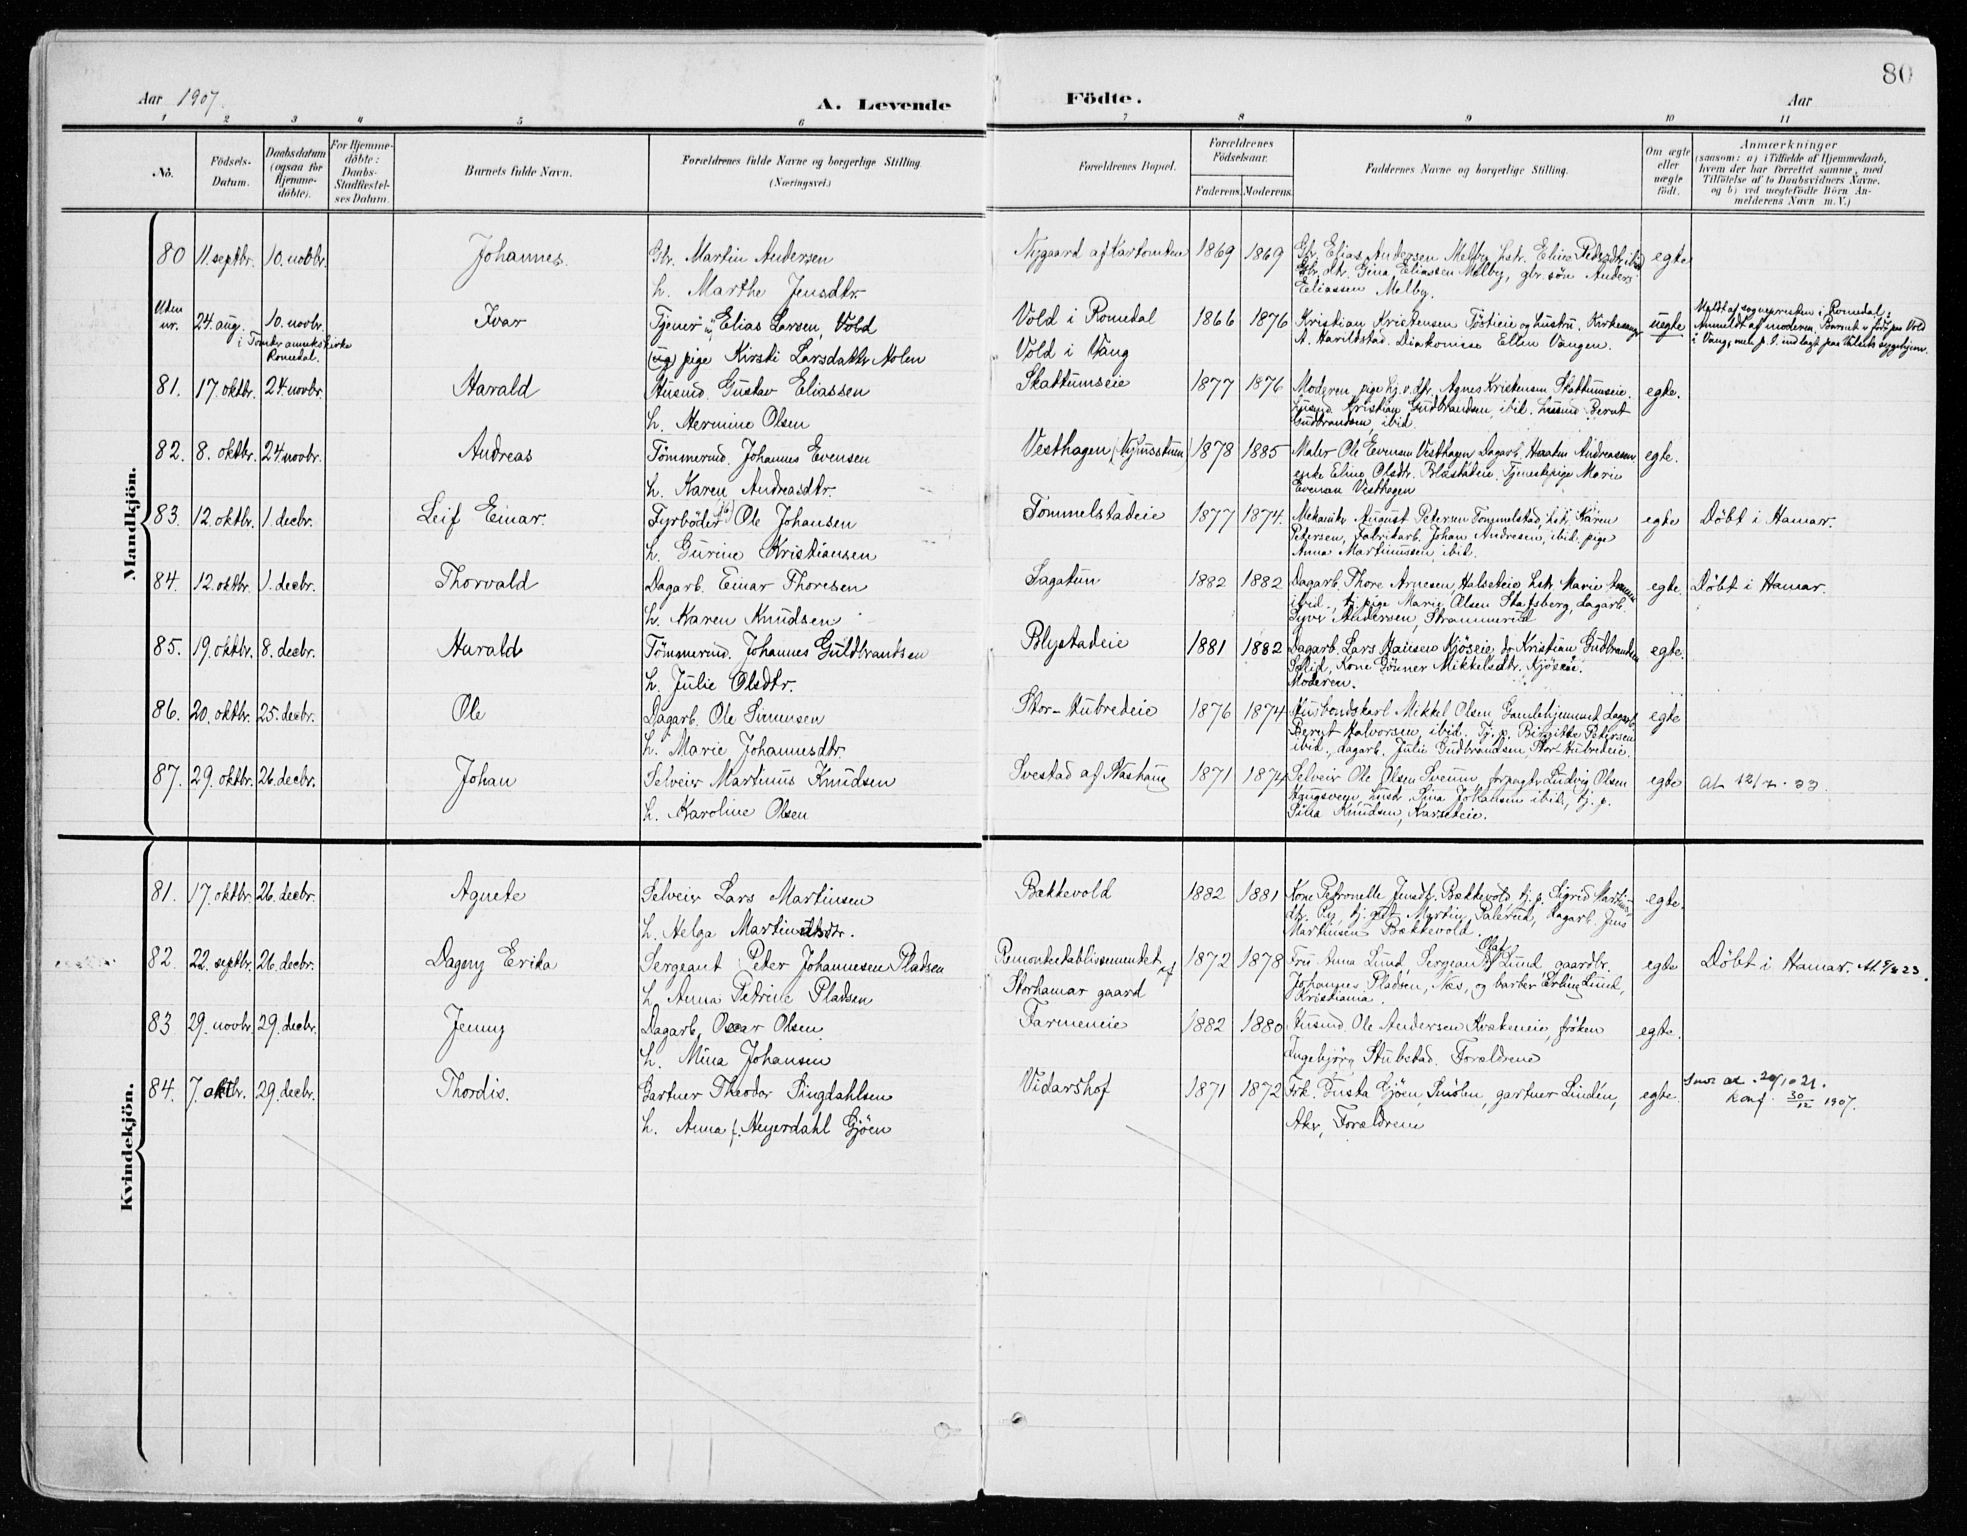 80
Aar 1907. A. Levende Födte. Aar
1 2 3 4 5 6 7 8 9 10 11
No. Födsels-Datum. Daabsdatum (ogsaa for Hjemmedöbte). For Hjemmedöbte: Daabs-Stadfæstelses Datum. Barnets fulde Navn. Forældrenes fulde Navne og borgerlige Stilling. (Næringsvei.) Forældrenes Bopæl. Forældrenes Födselsaar. Faderens. Moderens. Faddernes Navne og borgerlige Stilling. Om ægte eller uægte födt. Anmærkninger (saasom: a) i Tilfælde af Hjemmedaab, hvem der har forrettet samme, med Tilföielse af to Daabsvidners Navne, og b) ved uegtefödte Börn Anmelderens Navn m. V.)
Mandkjön.
80 11. septbr. 10. novbr. Johannes. Gbr. Martin Andersen Nygaard af Kartomten 1869 1869 Gbr. Elias Andersen Melby, hstr. Eline Pedersdtr ibid egte
h. Marthe Jensdtr. Gbr. dtr. Gina Eliassen Melby, gbr. søn Anders
Eliassen Melby.
Uden nr. 24. aug. 10. novbr. Ivar Tjener Elias Larsen, Vold Vold i Romedal 1866 1876 Kristian Kristensen Töstieie og hustru. Kirkesanger uegte Meldt af sognepresten i Romedal.
i Tomter annekskirke Romedal. (ug) pige Kirsti Larsdatter Molen Vold i Vang A. Haritstad. Diakonisse Ellen Vangen. Anmeldt af moderen. Barnet er födt paa Vold
i Vang, men p. t. indlagt paa Valsets sygehjem.
81. 17. oktbr. 24. novbr. Harald Husmd. Gustav Eliassen Skattumseie 1877 1876 Moderen, pige hj. v. dtr. Agnes Kristensen Skattumseie. egte.
h. Hermine Olsen husmd. Kristian Gudbrandsen, ibid. husmd Bernt
Gudbrandsen, ibid.
82. 8. oktbr. 24. novbr. Andreas Tömmermd. Johannes Evensen Vesthagen (Nyhusstuen) 1878 1885 Maler Ole Evensen Vesthagen Dagarb. Haaken Andreassen egte.
h. Karen Andreasdtr. enke Eline Olsdtr. Blæstadeie. Tjenestepige Marie
Evensen Vesthagen
83. 12. oktbr. 1. decbr. Leif Einar. Fyrböder Ole Johansen Tommelstadeie 1877 1874. Mekaniker August Petersen Tommelstad, hstr. Karen egte Döbt i Hamar.
h. Gurine Kristiansen Petersen, Fabrikarb. Johan Andresen, ibid. pige
Anna Martinussen, ibid.
84. 12. oktbr. 1. decbr. Thorvald Dagarb. Einar Thoresen Sagatun 1882 1882 Dagarb. Thore Arnesen, Halseteie, hstr Marie egte. Döbt i Hamar.
h. Karen Knudsen ibid., tj. pige Marie Olsen Stafsberg, dagarb.
Syver Andersen, Strammerud
85. 19. oktbr. 8. decbr. Harald Tömmermd. Johannes Guldbrantsen Blystadeie 1881 1882 Dagarb. Lars Hansen Kjöseie, do Kristian Gudbrandsen egte.
h. Julie Olsdtr. Kone Gunner Mikkelsdtr. Kjöseie.
Moderen.
86. 20. oktbr. 25. decbr. Ole Dagarb. Ole Simensen Stor-Hubredeie 1876 1874 Husbondskarl Mikkel Olsen, Gamlehjemmet, dagarb. egte
h. Marie Johannesdtr Berget Halvorsen, ibid. Tj. p. Birgitte Petersen
ibid., dagarb. Julie Gudbrandsen, Stor Hubredeie.
87. 29. oktbr. 26. decbr. Johan Selveier Martinus Knudsen Svestad af Nashaug 1871 1874 Selveier Ole Olsen Sveum, forpagter Ludvig Olsen egte
h. Karoline Olsen Haugsveen, hustr. Sina Johansen ibid., tj. p.
Sina Knudsen, Karseteie.
Kvindekjön.
81. 17. oktbr. 26. decbr. Agnete Selveier Lars Martinsen Bækkevold 1882 1881 Kone Petronelle Jensdtr. Bækkevold, tj. p. Sigrid Martins- egte.
h. Helga Martinsdtr. dtr. By, tj. gut Martin Palerud, dagarb. Jens
Martinsen Bækkevold.
82 22. septbr. 26. decbr. Dagny Erika Sergeant Peter Johannesen Pladsen Remonteetablissementet af 1872 1878 Fru Anna Lund, Sergeant Olaf Lund, gaardbr. egte Döbt i Hamar.
h. Anna Petrine Pladsen Storhamar gaard Johannes Pladsen, Næs, og barber Erling Lund,
Kristiania.
83 29. novbr. 29. decbr. Jenny Dagarb. Oscar Olsen Farmeneie 1882 1880 Husmd. Ole Andersen Krækeneie, fröken egte.
h. Mina Johansen Ingebjørg Stubstad. Forældrene
84. 7. oktbr. 29. decbr. Thordis. Gartner Theodor Ringdahlsen Vidarshof 1871 1872 Frk. Gusta Gjöen, Smölen, gartner Lindén, egte. Snr. at. 20/10 21.
h. Anna f. Heyerdahl Gjöen Aker, Forældrene Konf. 30/12 1907.